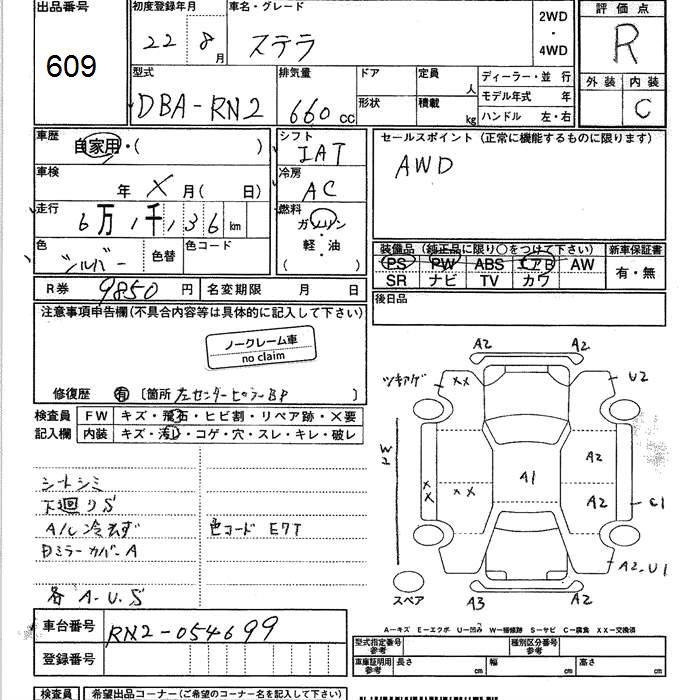 出品番号 初度登録年月 車名・グレード 2WD ・ 4WD 評価点
609 22 8月 ステラ R
外装 内装
C
型式 排気量 ドア 定員 人 ディーラー・並行
DBA-RN2 660cc 形状 積載 kg モデル年式 年
ハンドル 左・右
車歴 自家用・( ) シフト IAT セールスポイント(正常に機能するものに限ります)
車検 年 X 月( 日) 冷房 AC AWD
走行 6万1千136km 燃料 ガソリン
軽・油
( )
色 シルバー 色替 色コード
装備品(純正品に限り○をつけて下さい) 新車保証書
PS PW ABS エアB AW 有・無
SR ナビ TV カワ
R券 9850円 名変期限 月 日 後日品
注意事項申告欄(不具合内容等は具体的に記入して下さい)
ノークレーム車
no claim
修復歴 有 〔箇所 左センターピラーBP 〕
検査員 FW キズ・飛石・ヒビ割・リペア跡・X要
記入欄 内装 キズ・汚れ・コゲ・穴・スレ・キレ・破レ
シートシミ
下廻りS
A/C冷えず 色コード E7T
Dミラーカバー A
各 A.U.S
A2 A2
ツキアゲ XX U2
W2 A2
XX XX A1 A2 C1
A2.U1
スペア A3 A2
A―キズ E―エクボ U―凹み W―補修跡 S―サビ C―腐食 XX―交換済
車台番号 RN2-054699
登録番号
型式指定番号 参考 種別区分番号 参考
車庫証明用 参考 長さ cm 幅 cm 高さ cm
検査員 希望出品コーナー(ご希望のコーナー名を記入して下さい)